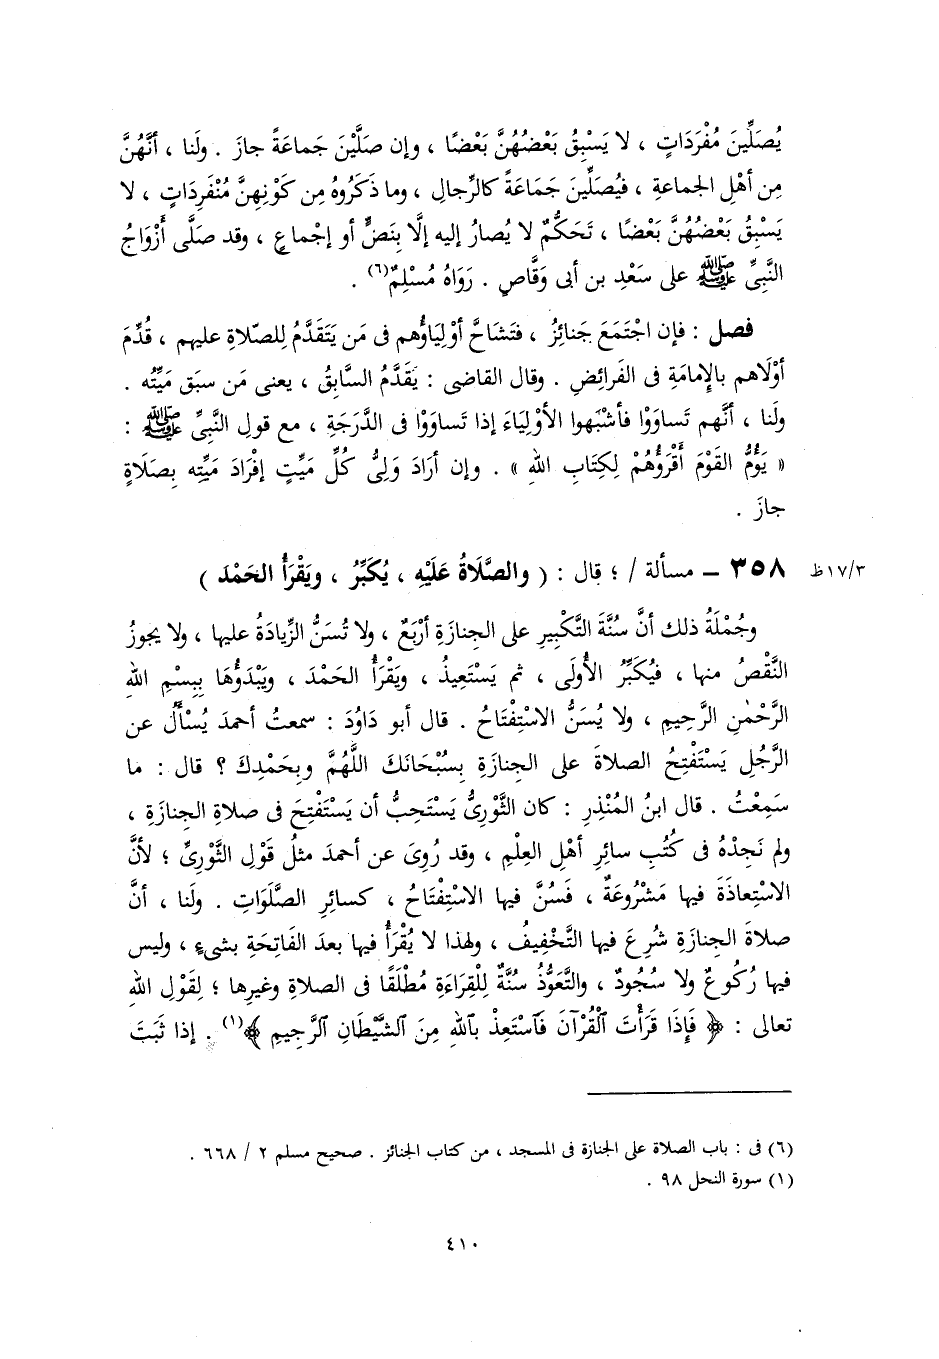 يُصَلِّينَ مُفْرَدَاتٍ ، لا يَسْبِقُ بَعْضُهُنَّ بَعْضًا ، وإن صَلَّيْنَ جَماعَةً جازَ . ولَنا ، أنَّهُنَّ
مِن أهْلِ الجماعةِ ، فيُصَلِّينَ جَمَاعَةً كالرِّجالِ ، وما ذَكَرُوهُ مِن كَوْنِهِنَّ مُنْفَرِدَاتٍ ، لا
يَسْبِقُ بَعْضُهُنَّ بَعْضًا ، تَحَكُّمٌ لا يُصارُ إليه إلَّا بِنَصٍّ أو إجْماعٍ ، وقد صَلَّى أزْوَاجُ
النَّبِىِّ ﷺ على سَعْدِ بن أبى وَقَّاصٍ . رَوَاهُ مُسْلِمٌ(٦) .
فصل : فإن اجْتَمَعَ جَنائِزُ ، فتَشَاحَّ أوْلِياؤُهم فى مَن يَتَقَدَّمُ لِلصّلاةِ عليهم ، قُدِّمَ
أوْلَاهم بالإِمامَةِ فى الفَرائِضِ . وقال القاضى : يُقَدَّمُ السَّابِقُ ، يعنى مَن سبَق مَيِّتُه .
ولَنا ، أنَّهم تَساوَوْا فأشْبَهوا الأوْلِياءَ إذا تَساوَوْا فى الدَّرَجَةِ ، مع قولِ النَّبِىِّ ﷺ :
« يَؤُمُّ القَوْمَ أقْرَؤُهُمْ لِكِتَابِ اللهِ » . وإن أرَادَ وَلِىُّ كُلِّ مَيِّتٍ إفْرَادَ مَيِّتِه بِصَلَاةٍ
جازَ .
٣٥٨ ــ مسألة / ؛ قال : ( والصَّلَاةُ عَلَيْهِ ، يُكَبِّرُ ، ويَقْرَأُ الحَمْدَ ) ١٧/٣ظ
وجُمْلَةُ ذلك أنَّ سُنَّةَ التَّكْبِيرِ على الجنازةِ أرْبَعٌ ، ولا تُسَنُّ الزِّيادَةُ عليها ، ولا يجوزُ
النَّقْصُ منها ، فيُكَبِّرُ الأُولَى ، ثم يَسْتَعِيذُ ، ويَقْرَأُ الحَمْدَ ، ويَبْدَؤُها بِبِسْمِ اللهِ
الرَّحْمٰنِ الرَّحِيمِ ، ولا يُسَنُّ الاسْتِفْتاحُ . قال أبو دَاوُدَ : سمعتُ أحمدَ يُسْأَلُ عن
الرَّجُلِ يَسْتَفْتِحُ الصلاةَ على الجِنازَةِ بِسُبْحَانَكَ اللَّهُمَّ وبِحَمْدِكَ ؟ قال : ما
سَمِعْتُ . قال ابنُ المُنْذِرِ : كان الثَّوْرِىُّ يَسْتَحِبُّ أن يَسْتَفْتِحَ فى صلاةِ الجِنازَةِ ،
ولم نَجِدْهُ فى كُتُبِ سائِرِ أهلِ العِلْمِ ، وقد رُوِىَ عن أحمدَ مثلُ قَوْلِ الثَّوْرِىِّ ؛ لأنَّ
الاسْتِعاذَةَ فيها مَشْرُوعَةٌ ، فَسُنَّ فيها الاسْتِفْتاحُ ، كسائِرِ الصَّلَوَاتِ . ولَنا ، أنَّ
صلاةَ الجِنازَةِ شُرِعَ فيها التَّخْفِيفُ ، ولهذا لا يُقْرَأُ فيها بعدَ الفَاتِحَةِ بشىءٍ ، وليس
فيها رُكُوعٌ ولا سُجُودٌ ، والتَّعَوُّذُ سُنَّةٌ لِلْقِرَاءَةِ مُطْلَقًا فى الصلاةِ وغيرِها ؛ لِقَوْلِ اللهِ
تعالى : ﴿ فَإِذَا قَرَأْتَ ٱلْقُرْآنَ فَٱسْتَعِذْ بِٱللهِ مِنَ ٱلشَّيْطَانِ ٱلرَّجِيمِ ﴾(١) . إذا ثَبَتَ
(٦) فى : باب الصلاة على الجنازة فى المسجد ، من كتاب الجنائز . صحيح مسلم ٢ / ٦٦٨ .
(١) سورة النحل ٩٨ .
٤١٠